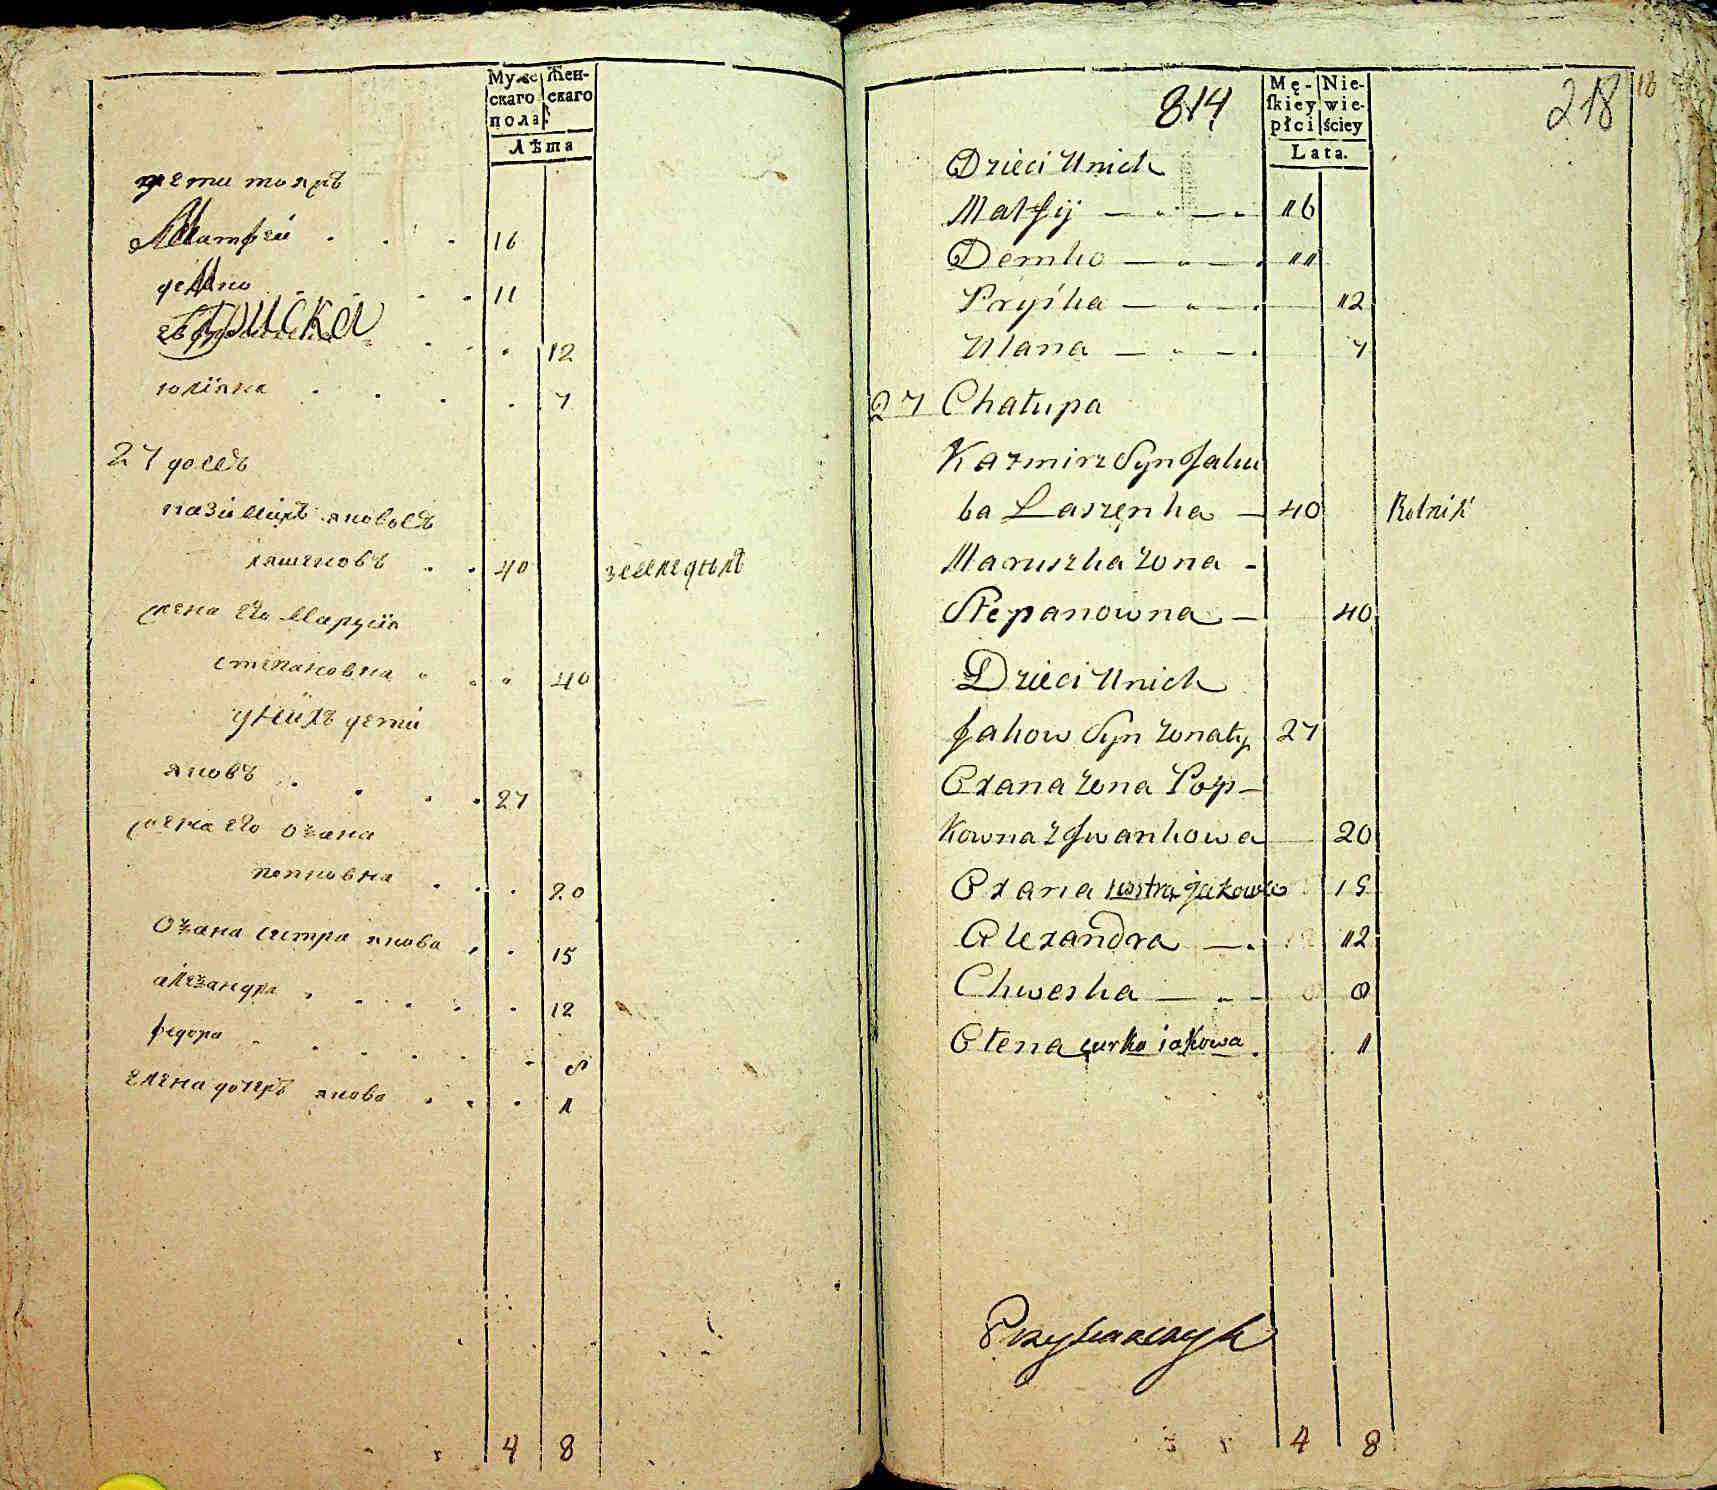 Муже Жен-
скаго скаго
пола.
Лѣта
дети тояжъ
Матфей 16
демко 11
Приска 12
юлiяна 7
27 домъ
казимиръ якововъ
ляшенокъ 40 земледѣлъ
жена его Марусiя
степановна 40
унихъ дети
яковъ 27
жена его оѯана
попковна 20
Оѯана систра якова 15
алеѯандра 12
федора 8
елена дочеръ якова 1
4 8
814 218 18
Mę- Nie-
skiey wie-
płci ściey
Lata.
Dzieci Unich
Matfij 16
Demko 11
Pryśka 12
Ulana 7
27 Chałupa
Kazmirz Syn Jaku
ba Laszęnka 40 Rolnik
Maruszka żona
Stepanowna 40
Dzieci Unich
Jakow Syn żonaty 27
Oxana żona Pop-
Kowna z Jwankowa 20
Oxana sostra jakowa 15
Olexandra 12
Chweska 8
Olena curka iakowa 1
4 8